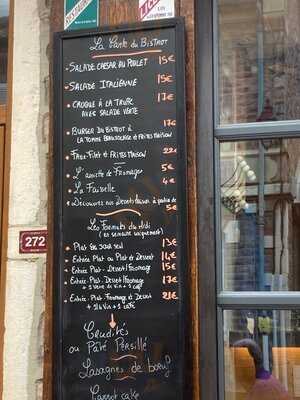 RESTAURANT
LICE
La Carte du BISTROT
SALADE CAESAR AU POULET 15€
SALADE ITALIENNE 15€
CROQUE À LA TRUFFE 17€
AVEC SALADE VERTE
17€
BURGER DU BISTROT À
LA TOMME BEAUJOLAISE et FRITES MAISON
FAUX-FILET et FRITES MAISON 22€
L'assiette de Fromages 5€
La Faisselle 4€
Découvrez nos Desserts Maison à partir de
5€
Les Formules du Midi
(en semaine uniquement)
PLAT DU JOUR SEUL 13€
ENTRÉE PLAT ou PLAT et DESSERT 14€
ENTRÉE-PLAT-DESSERT/FROMAGE 15€
ENTRÉE-PLAT-DESSERT/FROMAGE 17€
+ 1 Verre de Vin + 1 café
ENTRÉE-PLAT-FROMAGE et DESSERT 21€
+ 1/4 Vin + 1 café
Crudités
ou Pâté Persillé
Lasagnes de boeuf
Carrot cake
272